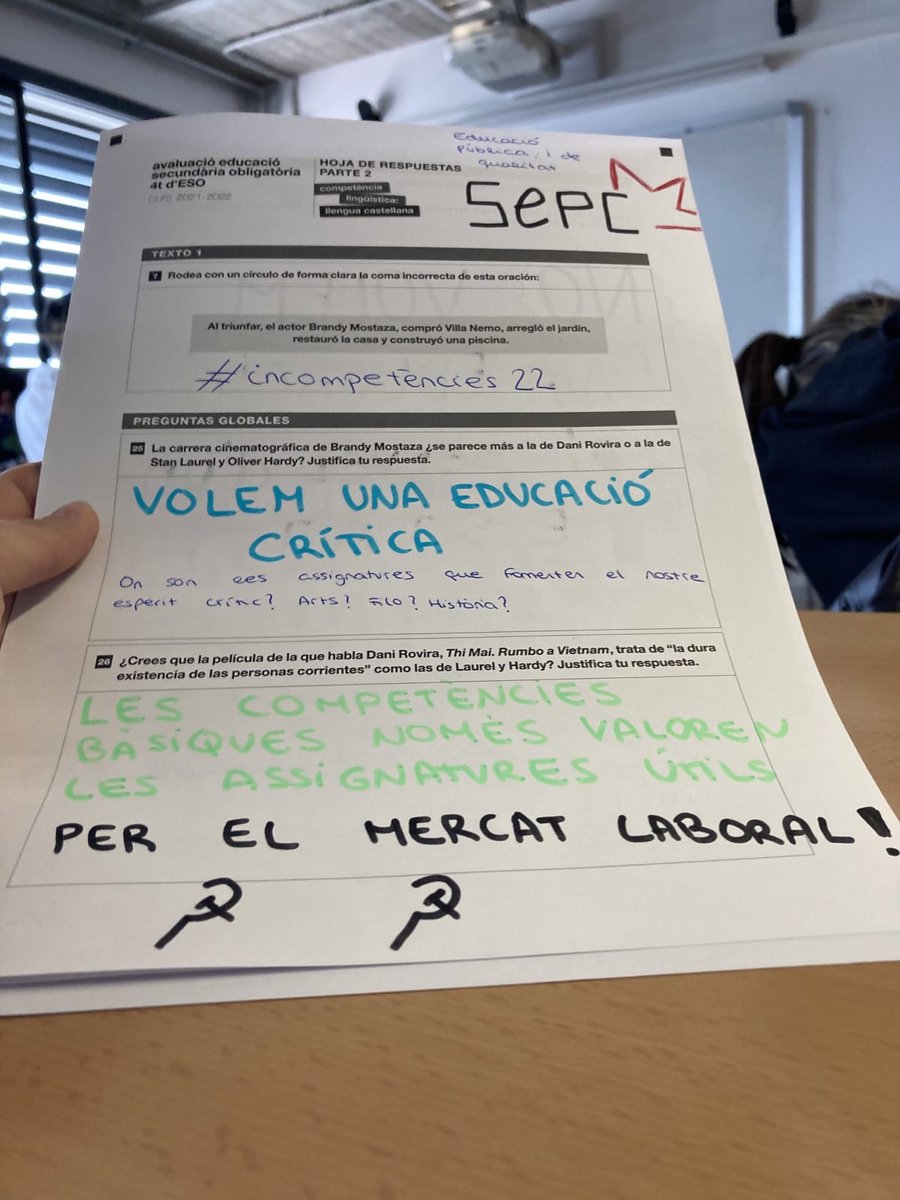 Educació
pública, i de
qualitat
avaluació educació
secundària obligatòria
4t d'ESO
curs 2021-2022
HOJA DE RESPUESTAS
PARTE 2
competència
lingüística:
llengua castellana
SEPC
TEXTO 1
7 Rodea con un círculo de forma clara la coma incorrecta de esta oración:
Al triunfar, el actor Brandy Mostaza, compró Villa Nemo, arregló el jardín,
restauró la casa y construyó una piscina.
#incompetències 22
PREGUNTAS GLOBALES
25 La carrera cinematográfica de Brandy Mostaza ¿se parece más a la de Dani Rovira o a la de
Stan Laurel y Oliver Hardy? Justifica tu respuesta.
VOLEM UNA EDUCACIÓ
CRÍTICA
On son les assignatures que fomenten el nostre
esperit crític? Arts? Filo? Història?
26 ¿Crees que la película de la que habla Dani Rovira, Thi Mai. Rumbo a Vietnam, trata de "la dura
existencia de las personas corrientes" como las de Laurel y Hardy? Justifica tu respuesta.
LES COMPETÈNCIES
BÀSIQUES NOMÉS VALOREN
LES ASSIGNATURES ÚTILS
PER EL MERCAT LABORAL!